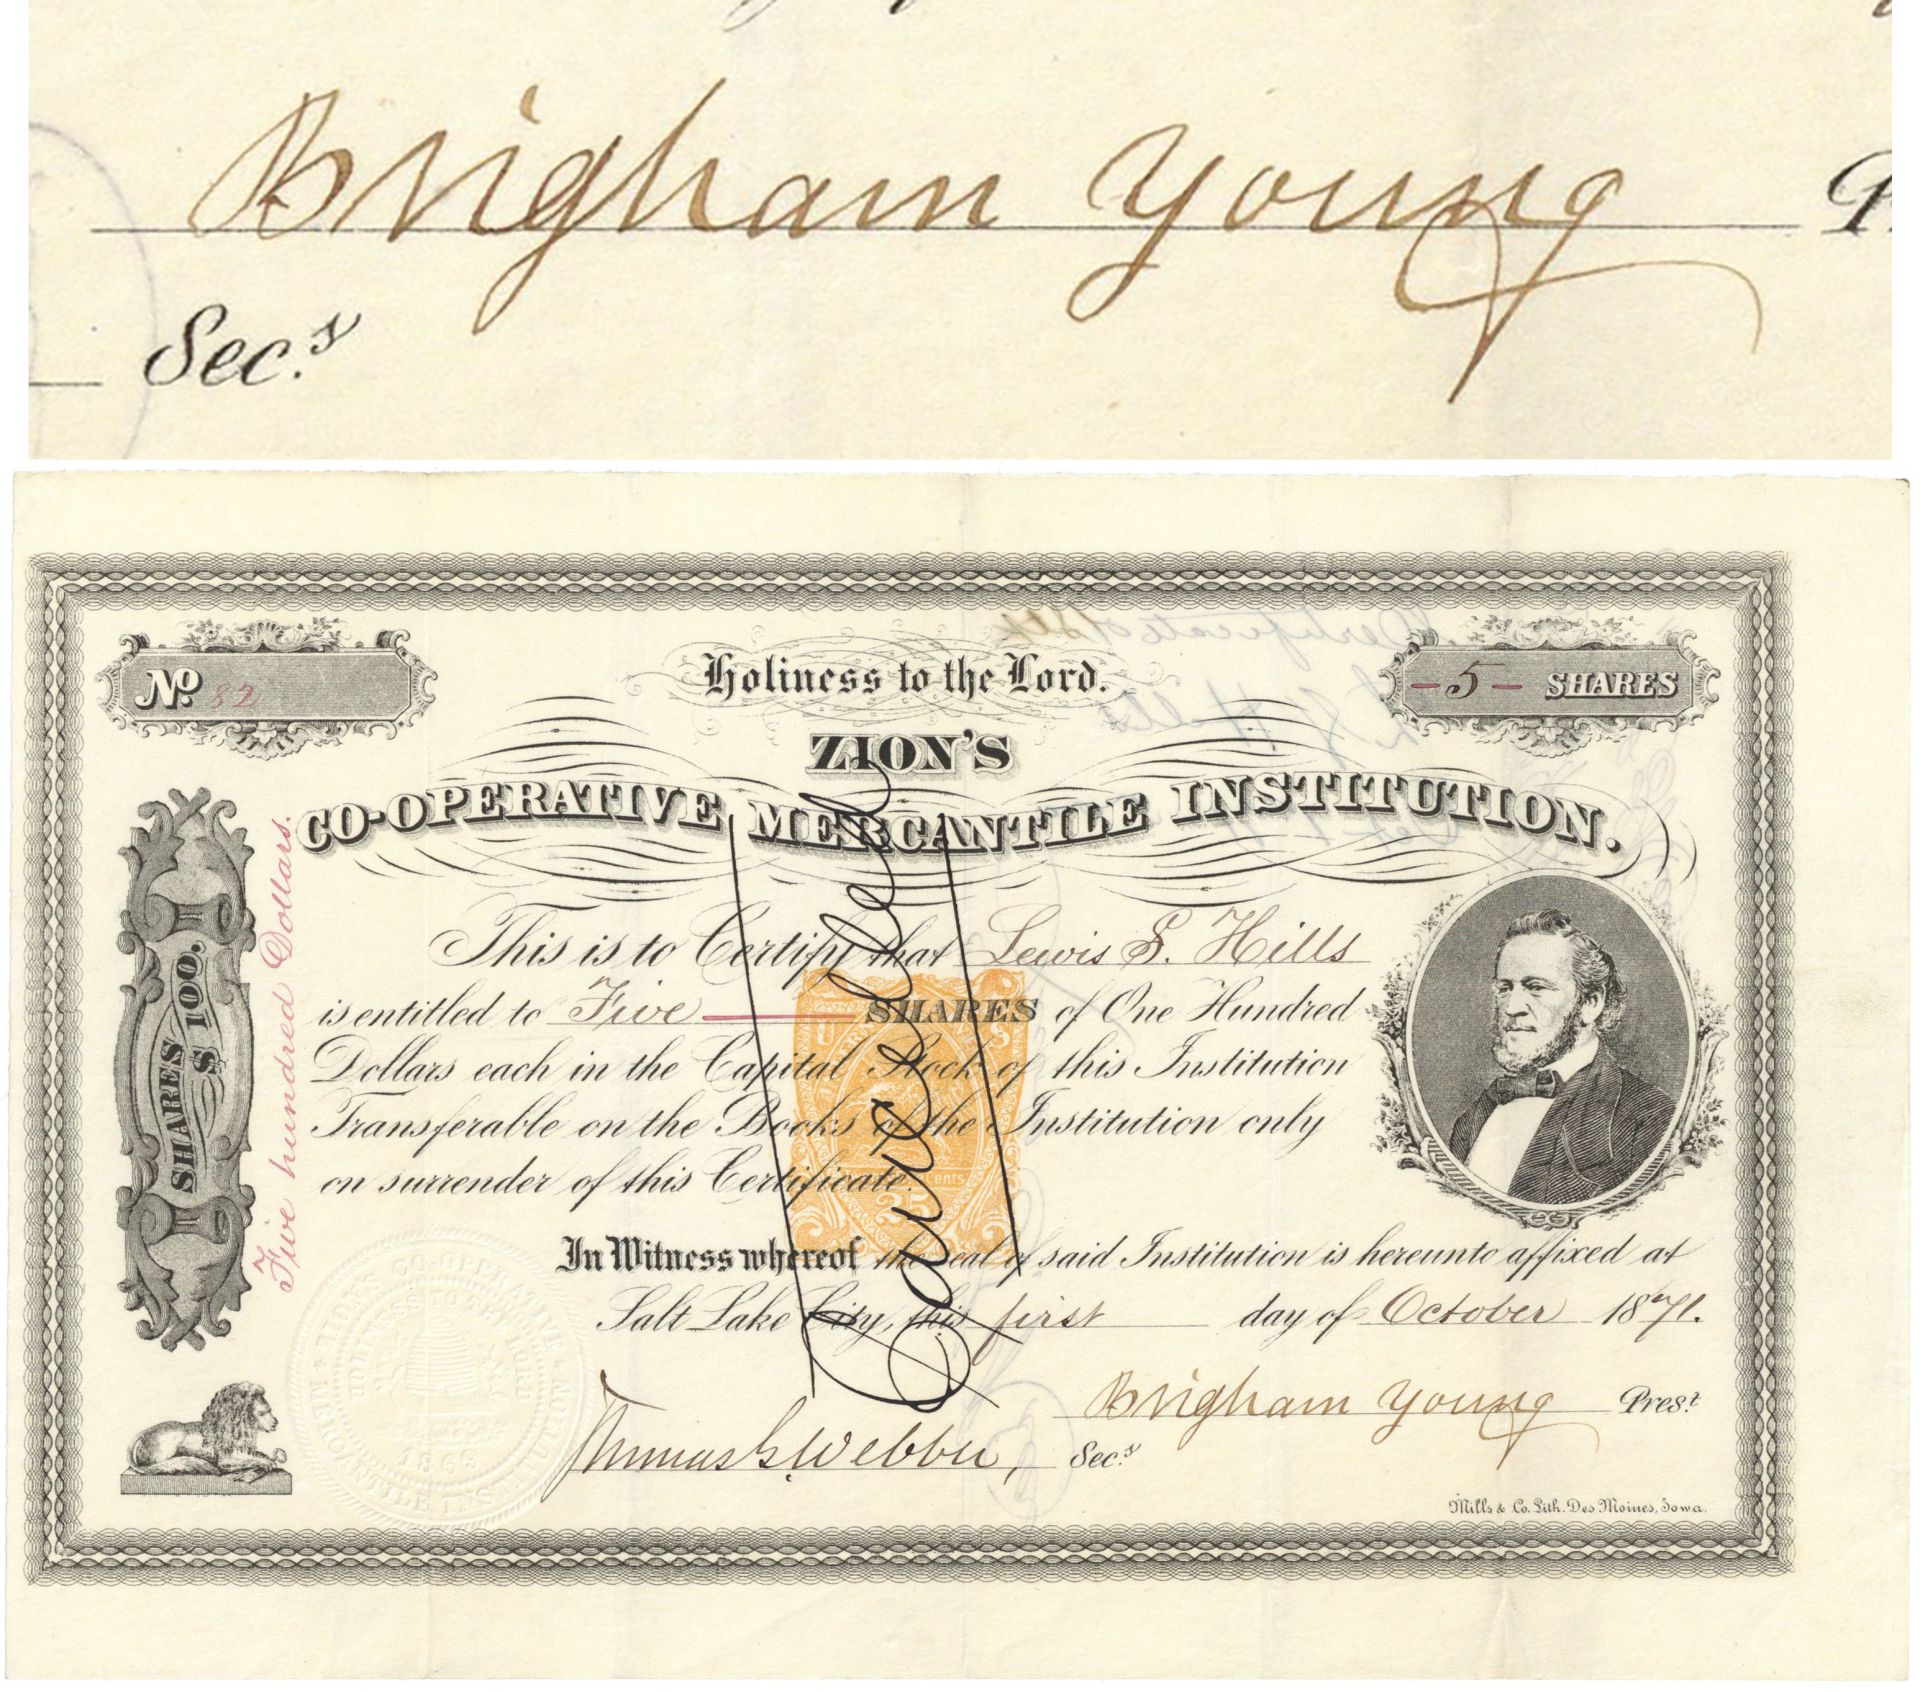 Brigham Young
P
Sec.ʸ
Nº 82
Holiness to the Lord.
- 5 - SHARES
ZION'S
CO-OPERATIVE MERCANTILE INSTITUTION.
SHARES $100.
Five hundred Dollars.
This is to Certify that Lewis S. Hills
is entitled to Five SHARES of One Hundred
Dollars each in the Capital Stock of this Institution
Transferable on the Books of the Institution only
on surrender of this Certificate.
Cancelled
U S
25 Cents
In Witness whereof the seal of said Institution is hereunto affixed at
Salt Lake City, this first day of October 1871.
ZION'S CO-OPERATIVE MERCANTILE INSTITUTION
HOLINESS TO THE LORD
1869
Brigham Young Pres.ᵗ
Thomas G. Webber, Sec.ʸ
Mills & Co. Lith. Des Moines, Iowa.